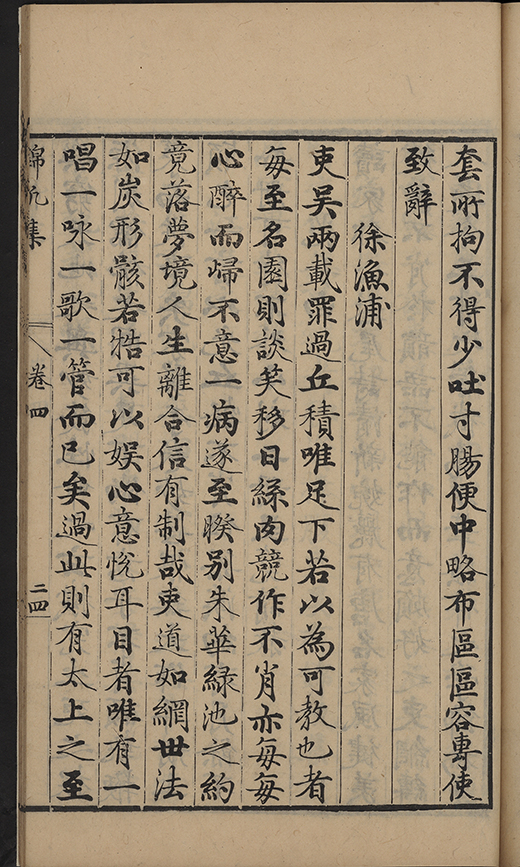 套所拘不得少吐寸腸便中略布區區容專使
致辭
徐漁浦
吏吳兩載罪過丘積唯足下若以為可教也者
每至名園則談笑移日絲肉競作不肖亦每每
心醉而歸不意一病遂至睽別朱華綠池之約
竟落夢境人生離合信有制哉吏道如網世法
如炭形骸若牿可以娛心意悅耳目者唯有一
唱一咏一歌一管而已矣過此則有太上之至
錦帆集
卷四
二四